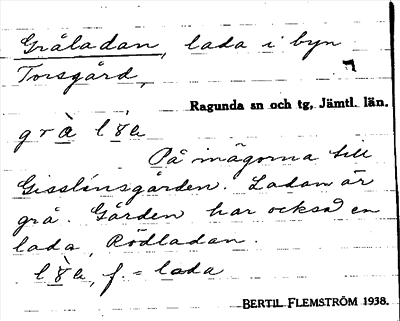 Gråladan, lada i byn
Torsgård,
Ragunda sn och tg, Jämtl. län.
På inägorna till
Gisslinsgården. Ladan är
grå. Gården har också en
lada, Rödladan.
f. = lada
BERTIL FLEMSTRÖM 1938.